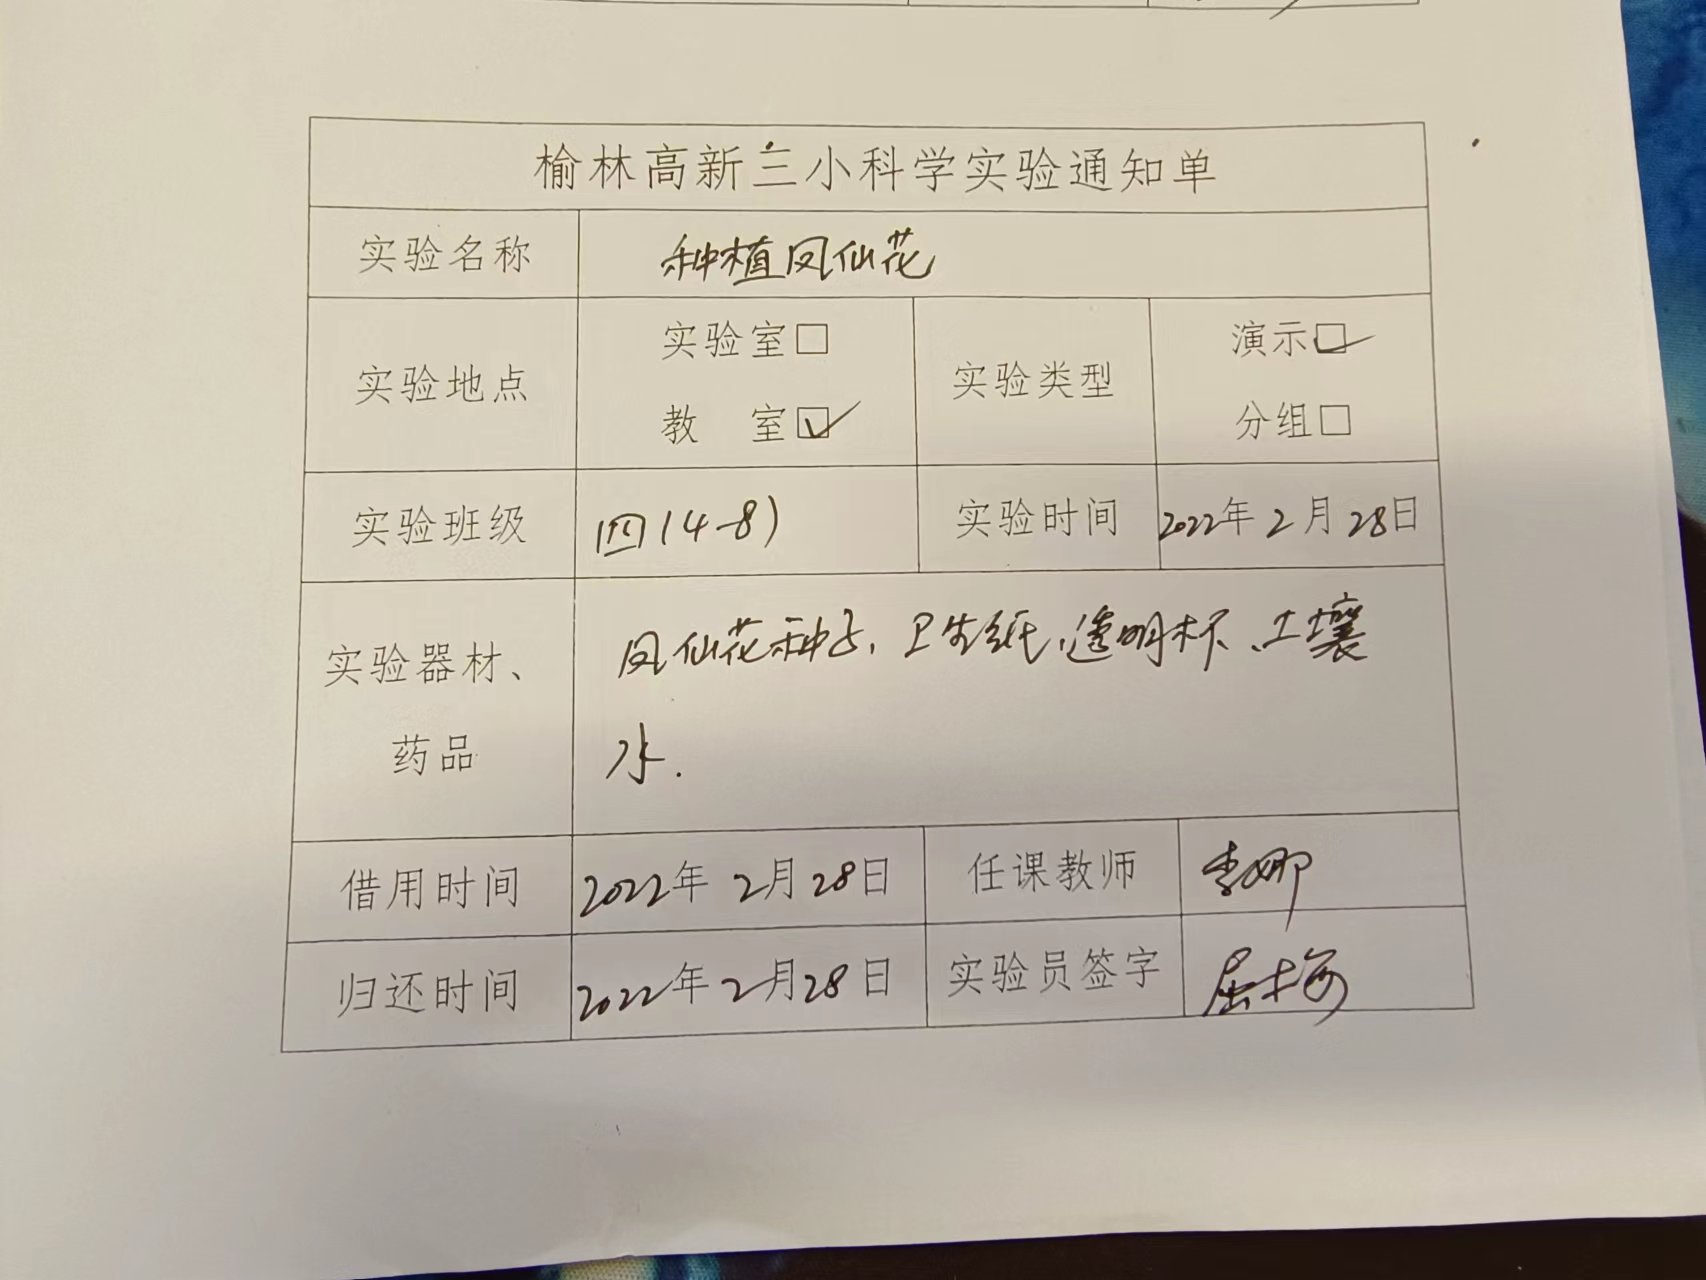 榆林高新三小科学实验通知单
实验名称 种植凤仙花
实验地点 实验室□ 教 室☑ 实验类型 演示☑ 分组□
实验班级 四(4-8) 实验时间 2022年2月28日
实验器材、药品 凤仙花种子、卫生纸、透明杯、土壤
水.
借用时间 2022年2月28日 任课教师 李娜
归还时间 2022年2月28日 实验员签字 屈梅